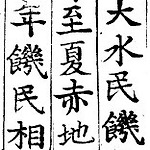 大水民饑
至夏赤地
年饑民相